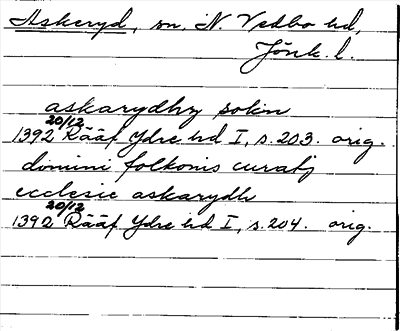 Askeryd, sn. N. Vedbo hd,
Jönk. l.
askarydhz sokn
20/12
1392 Rääf Ydre hd I, s. 203. orig.
domini folkonis curatj
ecclesie askarydh
20/12
1392 Rääf Ydre hd I, s. 204. orig.